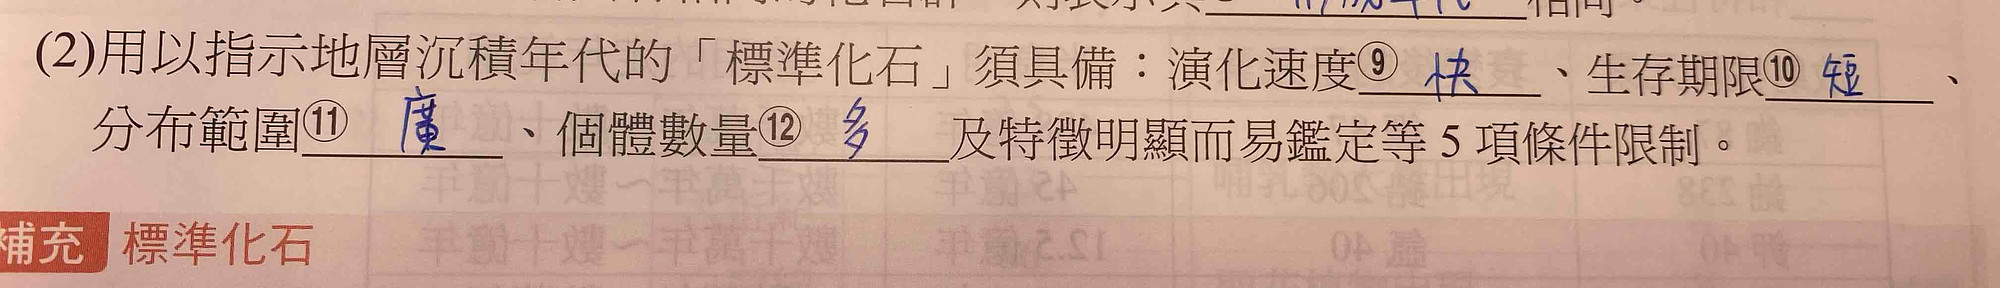 形成年代 相同。
(2)用以指示地層沉積年代的「標準化石」須具備：演化速度⑨ 快 、生存期限⑩ 短 、
分布範圍⑪ 廣 、個體數量⑫ 多 及特徵明顯而易鑑定等 5 項條件限制。
補充 標準化石